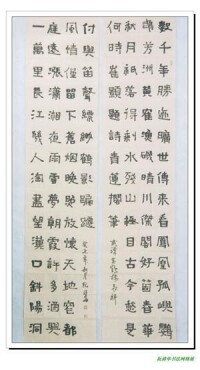 數千年勝迹曠世傳來看鳳凰孤岫鸚
鵡芳洲黃鵠漁磯晴川傑閣好箇春華
秋月祗落得剩水殘山極目古今愁是
何時崔顥題詩青蓮擱筆
一萬里長江幾人淘盡望漢口斜陽洞
庭遠漲瀟湘夜雨雲夢朝霞許多酒興
風情僅留下蒼烟晚照放懷天地窄都
付與笛聲縹緲鶴影蹁躚